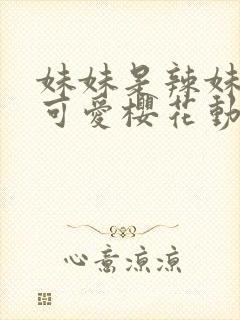 妹妹是辣妹
可愛櫻花動
心意涼涼